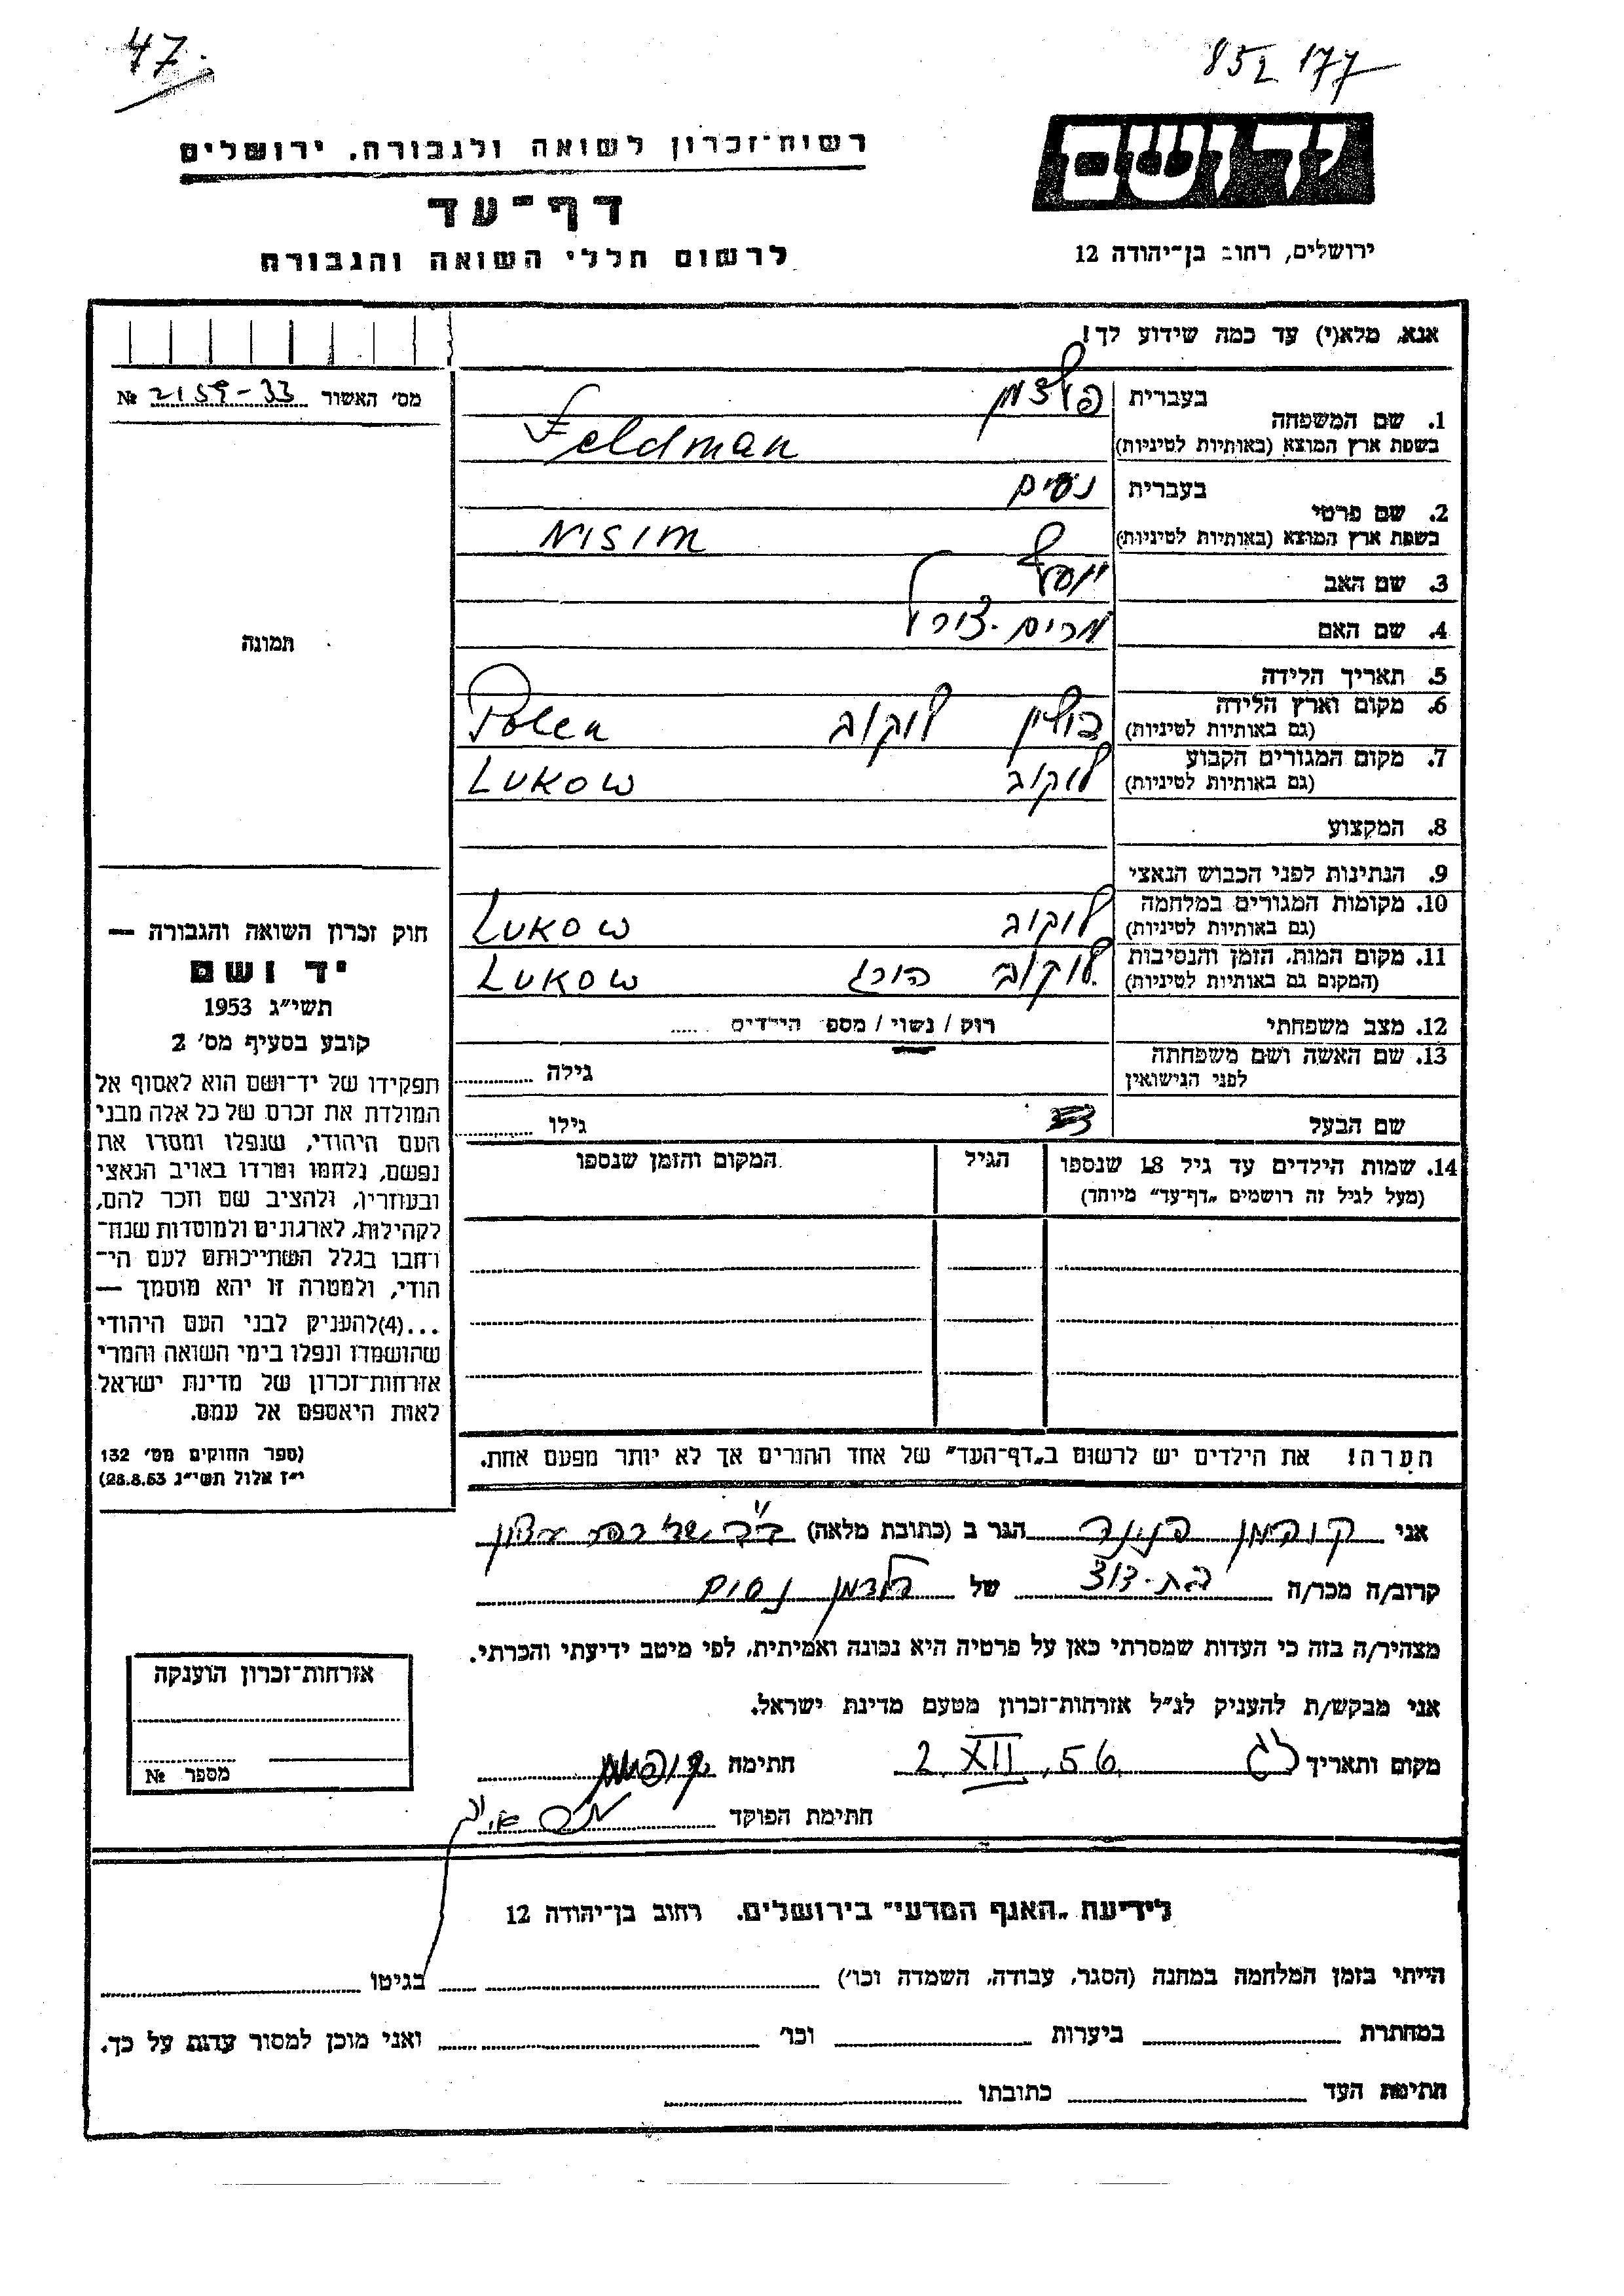 47.
85 I 177
יד ושם
רשות־זכרון לשואה ולגבורה, ירושלים
דף־עד
לרשום חללי השואה והגבורה
ירושלים, רחוב בן־יהודה 12
אנא, מלא(י) עד כמה שידוע לך!
מס׳ האשור 2159-33 №
תמונה
1. שם המשפחה בעברית פלדמן
בשפת ארץ המוצא (באותיות לטיניות) Feldman
2. שם פרטי בעברית נסים
בשפת ארץ המוצא (באותיות לטיניות) NISIM
3. שם האב יוסף
4. שם האם מרים
5. תאריך הלידה
6. מקום וארץ הלידה (גם באותיות לטיניות) פולין לוקוב Polen
7. מקום המגורים הקבוע (גם באותיות לטיניות) לוקוב LUKOW
8. המקצוע
9. הנתינות לפני הכבוש הנאצי
10. מקומות המגורים במלחמה (גם באותיות לטיניות) לוקוב LUKOW
11. מקום המות, הזמן והנסיבות (המקום גם באותיות לטיניות) לוקוב הורג LUKOW
12. מצב משפחתי רוק / נשוי / מספ׳ הילדים .....
13. שם האשה ושם משפחתה לפני הנישואין גילה
שם הבעל גילו
14. שמות הילדים עד גיל 18 שנספו הגיל המקום והזמן שנספו
(מעל לגיל זה רושמים „דף־עד״ מיוחד)
חוק זכרון השואה והגבורה —
יד ושם
תשי״ג 1953
קובע בסעיף מס׳ 2
תפקידו של יד־ושם הוא לאסוף אל
המולדת את זכרם של כל אלה מבני
העם היהודי, שנפלו ומסרו את
נפשם, נלחמו ומרדו באויב הנאצי
ובעוזריו, ולהציב שם וזכר להם,
לקהילות, לארגונים ולמוסדות שנח־
רבו בגלל השתייכותם לעם הי־
הודי, ולמטרה זו יהא מוסמך —
...(4)להעניק לבני העם היהודי
שהושמדו ונפלו בימי השואה והמרי
אזרחות־זכרון של מדינת ישראל
לאות היאספם אל עמם.
(ספר החוקים מס׳ 132
י״ז אלול תשי״ג 28.8.53)
הערה! את הילדים יש לרשום ב„דף־העד״ של אחד ההורים אך לא יותר מפעם אחת.
אני קופמן הגר ב (כתובת מלאה)
קרוב/ה מכר/ה בת-דוד של פלדמן נסים
מצהיר/ה בזה כי העדות שמסרתי כאן על פרטיה היא נכונה ואמיתית, לפי מיטב ידיעתי והכרתי.
אני מבקש/ת להעניק לנ״ל אזרחות־זכרון מטעם מדינת ישראל.
מקום ותאריך 2 XII, 56 חתימה קופמן
חתימת הפוקד
אזרחות־זכרון הוענקה
מספר №
לידיעת „האגף המדעי״ בירושלים, רחוב בן־יהודה 12
הייתי בזמן המלחמה במחנה (הסגר, עבודה, השמדה וכו׳) בגיטו
במחתרת ביערות וכו׳ ואני מוכן למסור עדות על כך.
חתימת העד כתובתו